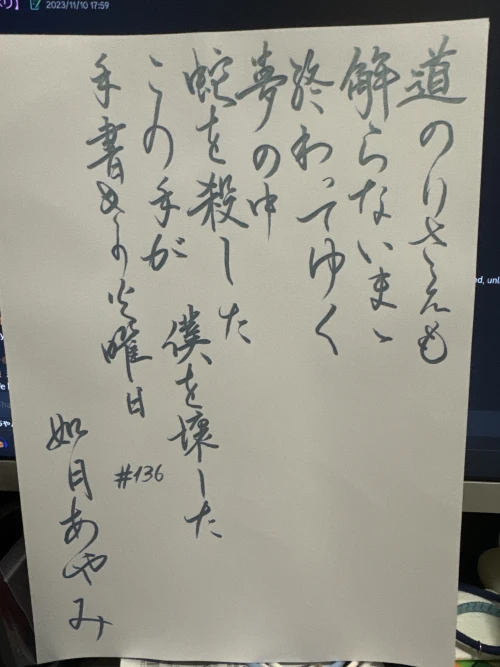 道のりさえも
解らないまゝ
終わってゆく
夢の中
蛇を殺した
この手が 僕を壊した
手書きの火曜日
#136
如月あやみ
2023/11/10 17:59